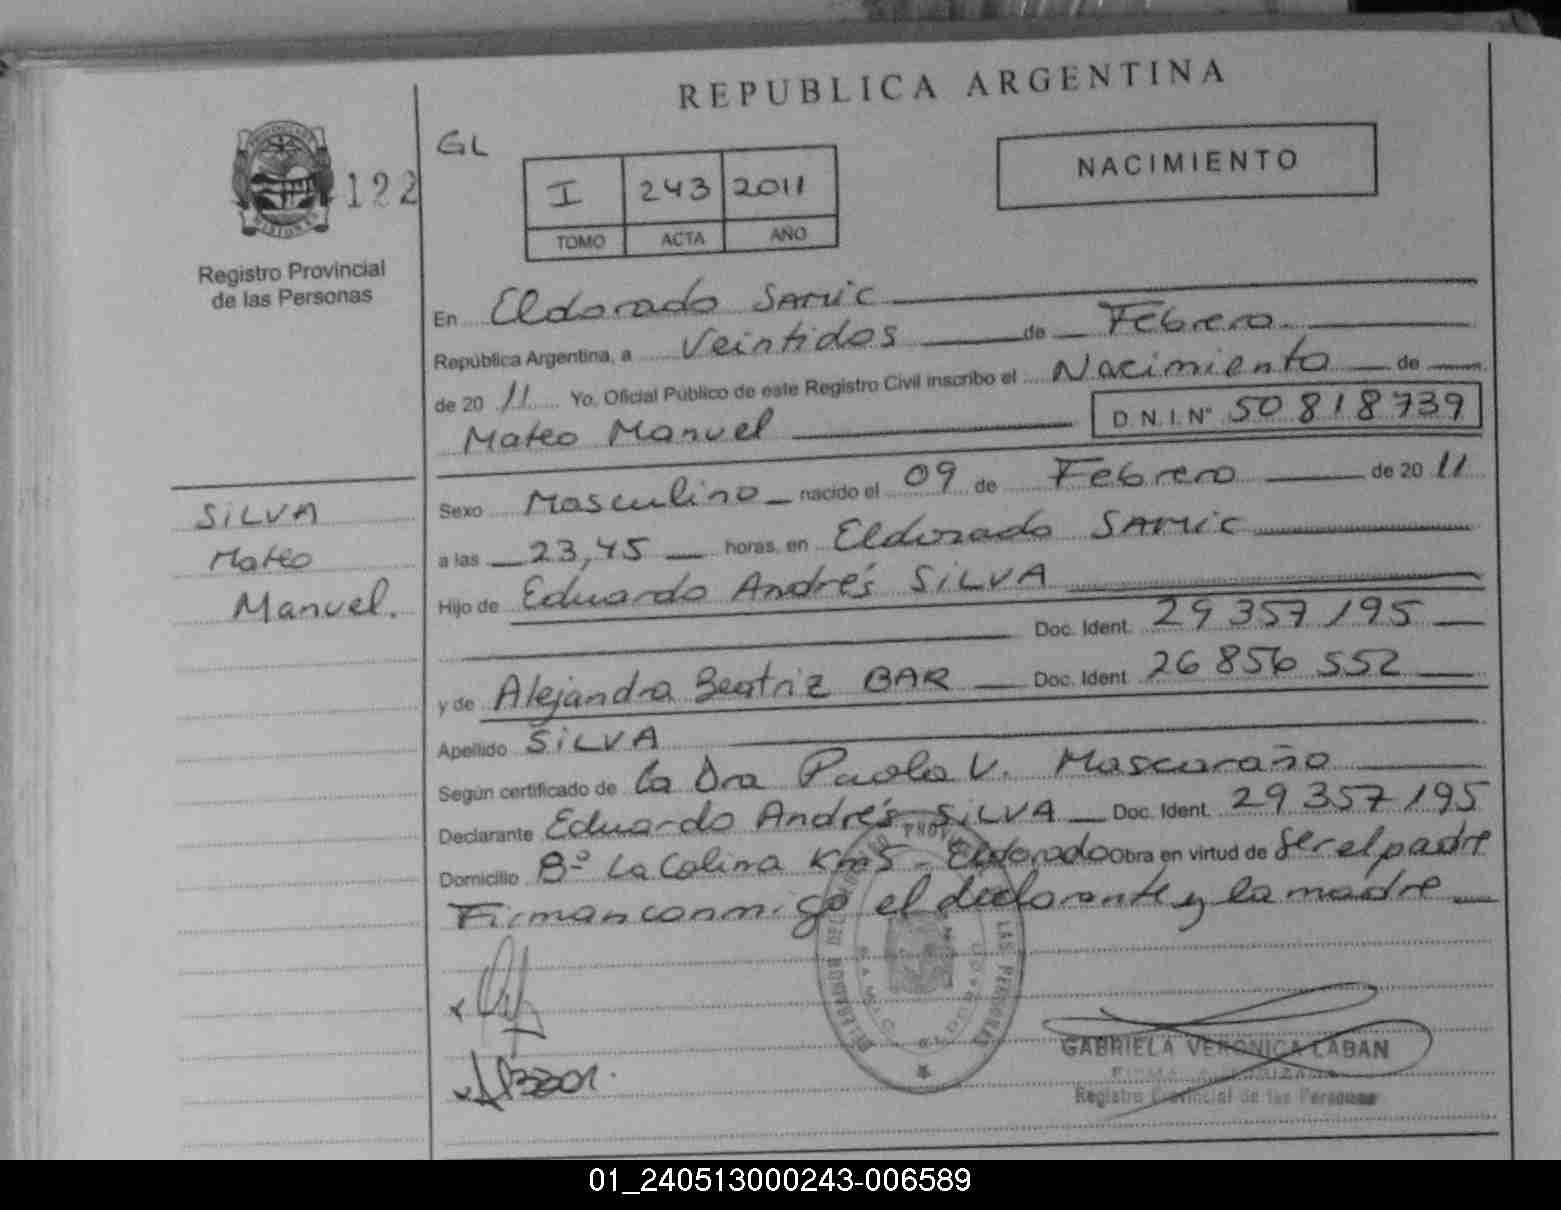 REPUBLICA ARGENTINA
GL
122
I 243 2011
TOMO ACTA AÑO
NACIMIENTO
Registro Provincial
de las Personas
En Eldorado SAMIC
República Argentina, a Veintidos de Febrero
de 20 11 Yo, Oficial Público de este Registro Civil inscribo el Nacimiento de
Mateo Manuel D.N.I.Nº 50 818 739
Sexo Masculino nacido el 09 de Febrero de 20 11
a las 23,45 horas, en Eldorado SAMIC
Hijo de Eduardo Andrés SILVA
Doc. Ident. 29 357 195
y de Alejandra Beatriz BAR Doc. Ident 26 856 552
Apellido SILVA
Según certificado de la Dra Paola V. Mascaraño
Declarante Eduardo Andrés SILVA Doc. Ident. 29 357 195
Domicilio Bº La Colina Km5 - Eldorado Obra en virtud de Ser el padre
Firman conmigo el declarante y la madre
SILVA
Mateo
Manuel.
LAS PERSONAS
ELDORADO
GABRIELA VERONICA LABAN
Registro Provincial de las Personas
01_240513000243-006589